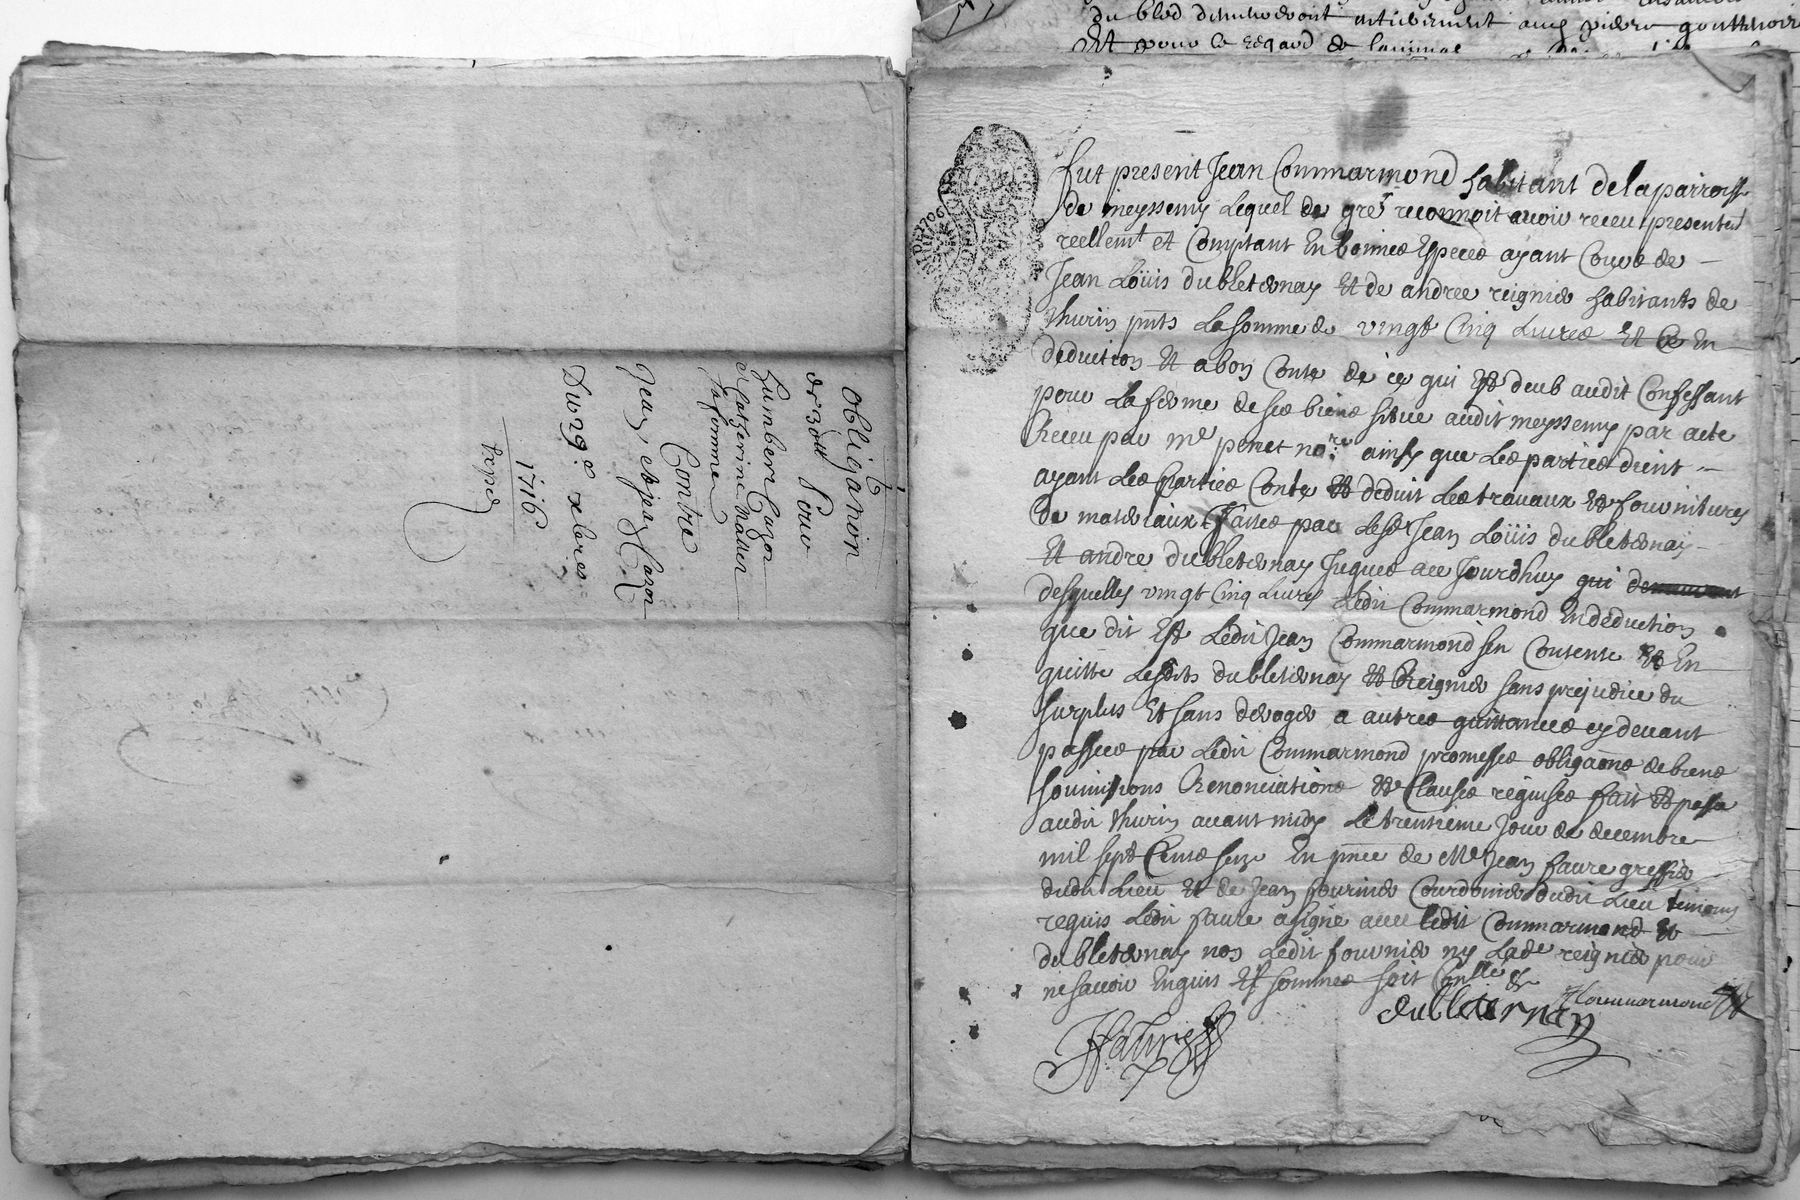 Obligation
de 30ll Pour
humbert Cazot
et Catherine
sa femme
Contre
Jean
Du 29e xbres
1716
du bled
Et pour le regard de
fut present Jean Commarmond habitant de la parroisse
de meyssemy Lequel de gre reconnoit avoir receu presentemt
reellemt et Comptant En bonnes Especes ayant Cours de
Jean Loüis dubleternay Et de andree reignier habitants de
thurin pnts La somme de vingt Cinq Livres Et Ce En
deduction Et a bon Conte de ce qui Est deub audit Confessant
pour La ferme de ses biens situe audit meyssemy par acte
Receu par me penet nore ainsy que Les parties dient
ayant Les parties Conté Et deduit Les travaux Et fournitures
de materiaux faites par Lesd Jean Loüis dubleternay
Et andre dubleternay Jusques a ce Jourdhuy qui
desquelles vingt Cinq Livres Ledit Commarmond En deduction
que dit Est Ledit Jean Commarmond sen Contente Et En
quitte Lesdits dubleternay Et Reignier sans prejudice du
surplus Et sans deroger a autres quittances cy devant
passees par Ledit Commarmond promesses obligaons de biens
soumissions Renonciations Et Clauses requises fait Et passé
audit thurin avant midy Le trentieme Jour de decembre
mil sept Cents seize En pnce de Me Jean faure greffier
dudit Lieu Et de Jean fournier Courdonier dudit Lieu temoins
requis Ledit faure a signe avec ledit Commarmond Et
dubleternay non Ledit fournier ny Lade reignier pour
ne scavoir Enquis Et sommes soit Conlle &
Commarmond
dubleternay
Faure